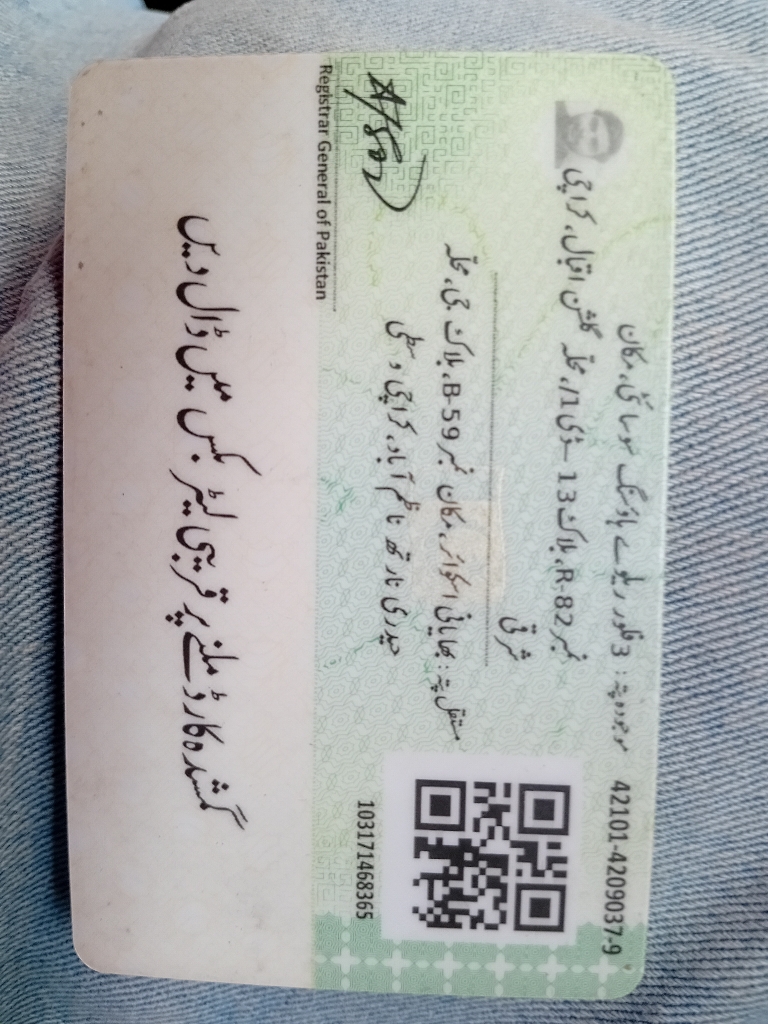 42101-4209037-9
موجودہ پتہ: 3 فلور ریلوے ہاؤسنگ سوسائٹی، مکان
نمبر R-82، بلاک 13 ڈی/1، محلہ گلشن اقبال، کراچی
شرقی
مستقل پتہ: بھایانی اسکوائر، مکان نمبر B-59، بلاک جی، محلہ
حیدری نارتھ ناظم آباد، کراچی وسطی
103171468365
Registrar General of Pakistan
گمشدہ کارڈ ملنے پر قریبی لیٹر بکس میں ڈال دیں